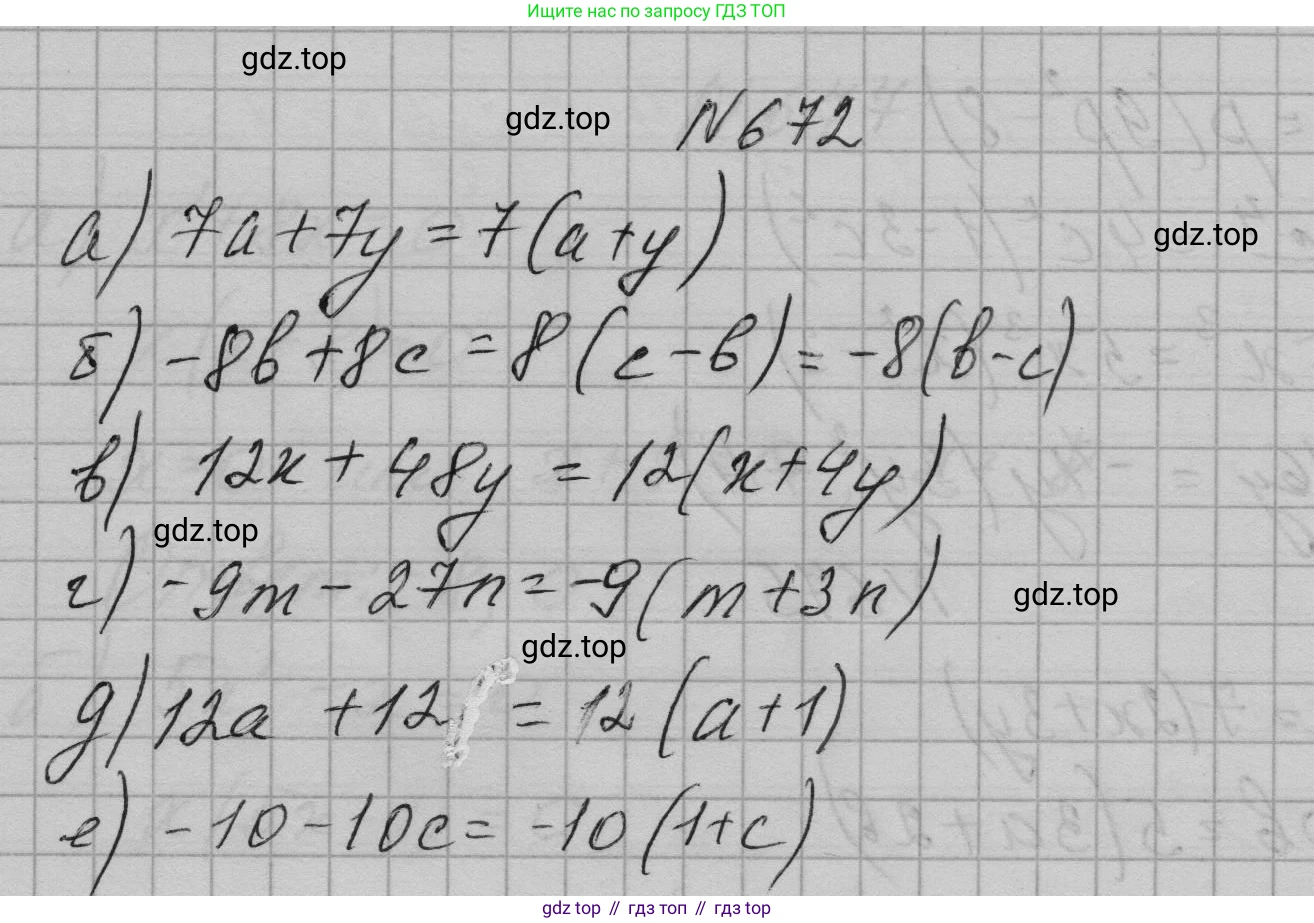 Ищите нас по запросу ГДЗ ТОП
gdz.top
gdz.top
N 672
а) 7a + 7y = 7(a + y)
gdz.top
б) -8в + 8c = 8(c - в) = -8(в - c)
в) 12x + 48y = 12(x + 4y)
gdz.top
г) -9m - 27n = -9(m + 3n)
gdz.top
gdz.top
д) 12a + 12 = 12(a + 1)
е) -10 - 10c = -10(1 + c)
gdz top // гдз топ // гдз top